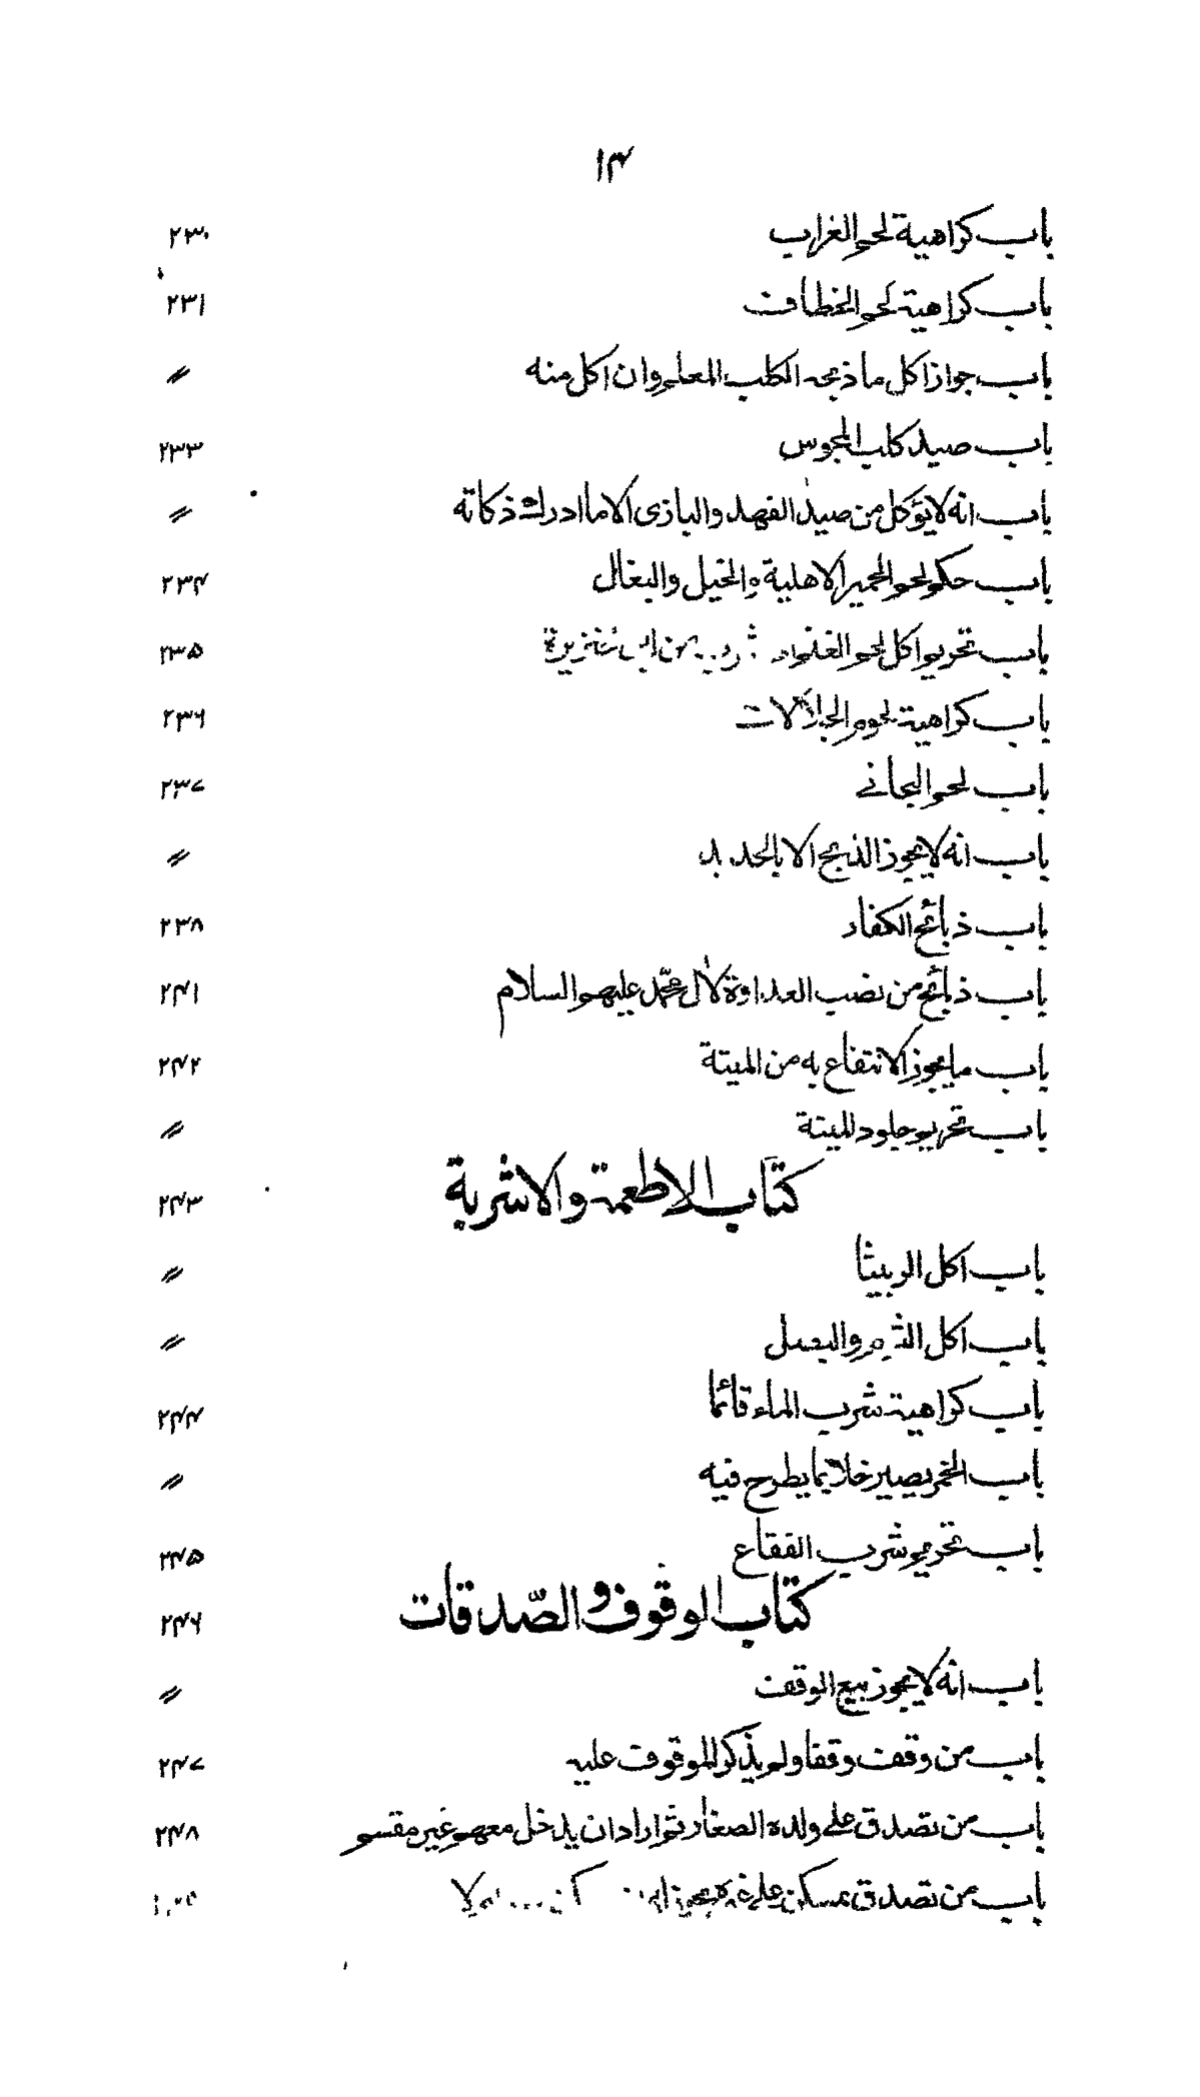 ۱۴
باب كراهية لحم الغراب ۲۳۰
باب كراهية لحم الخطاف ۲۳۱
باب جواز اكل ما ذبحه الكلب المعلم وان اكل منه 〃
باب صيد كلب المجوس ۲۳۳
باب انه لا يؤكل من صيد الفهد والبازى الا ما ادرك ذكاته 〃
باب حكم لحم الحمير الاهلية والخيل والبغال ۲۳۴
باب تحريم اكل لحم الغنم من لبن خنزيرة ۲۳۵
باب كراهية لحوم الجلالات ۲۳۶
باب لحم البخاتى ۲۳۷
باب انه لا يجوز الذبح الا بالحديد 〃
باب ذبائح الكفار ۲۳۸
باب ذبائح من نصب العداوة لال محمّد عليهم السلام ۲۴۱
باب ما يجوز الانتفاع به من الميتة ۲۴۲
باب تحريم جلود الميتة 〃
كتاب الاطعمة والاشربة ۲۴۳
باب اكل الربيثا 〃
باب اكل الثوم والبصل 〃
باب كراهية شرب الماء قائما ۲۴۴
باب الخمر يصير خلا بما يطرح فيه 〃
باب تحريم شرب الفقاع ۲۴۵
كتاب الوقوف والصّدقات ۲۴۶
باب انه لا يجوز بيع الوقف 〃
باب من وقف وقفا ولم يذكر الموقوف عليه ۲۴۷
باب من تصدق على ولده الصغار ثم اراد ان يدخل معهم غيرهم ۲۴۸
باب من تصدق بمسكن على غيره يجوز ان لا